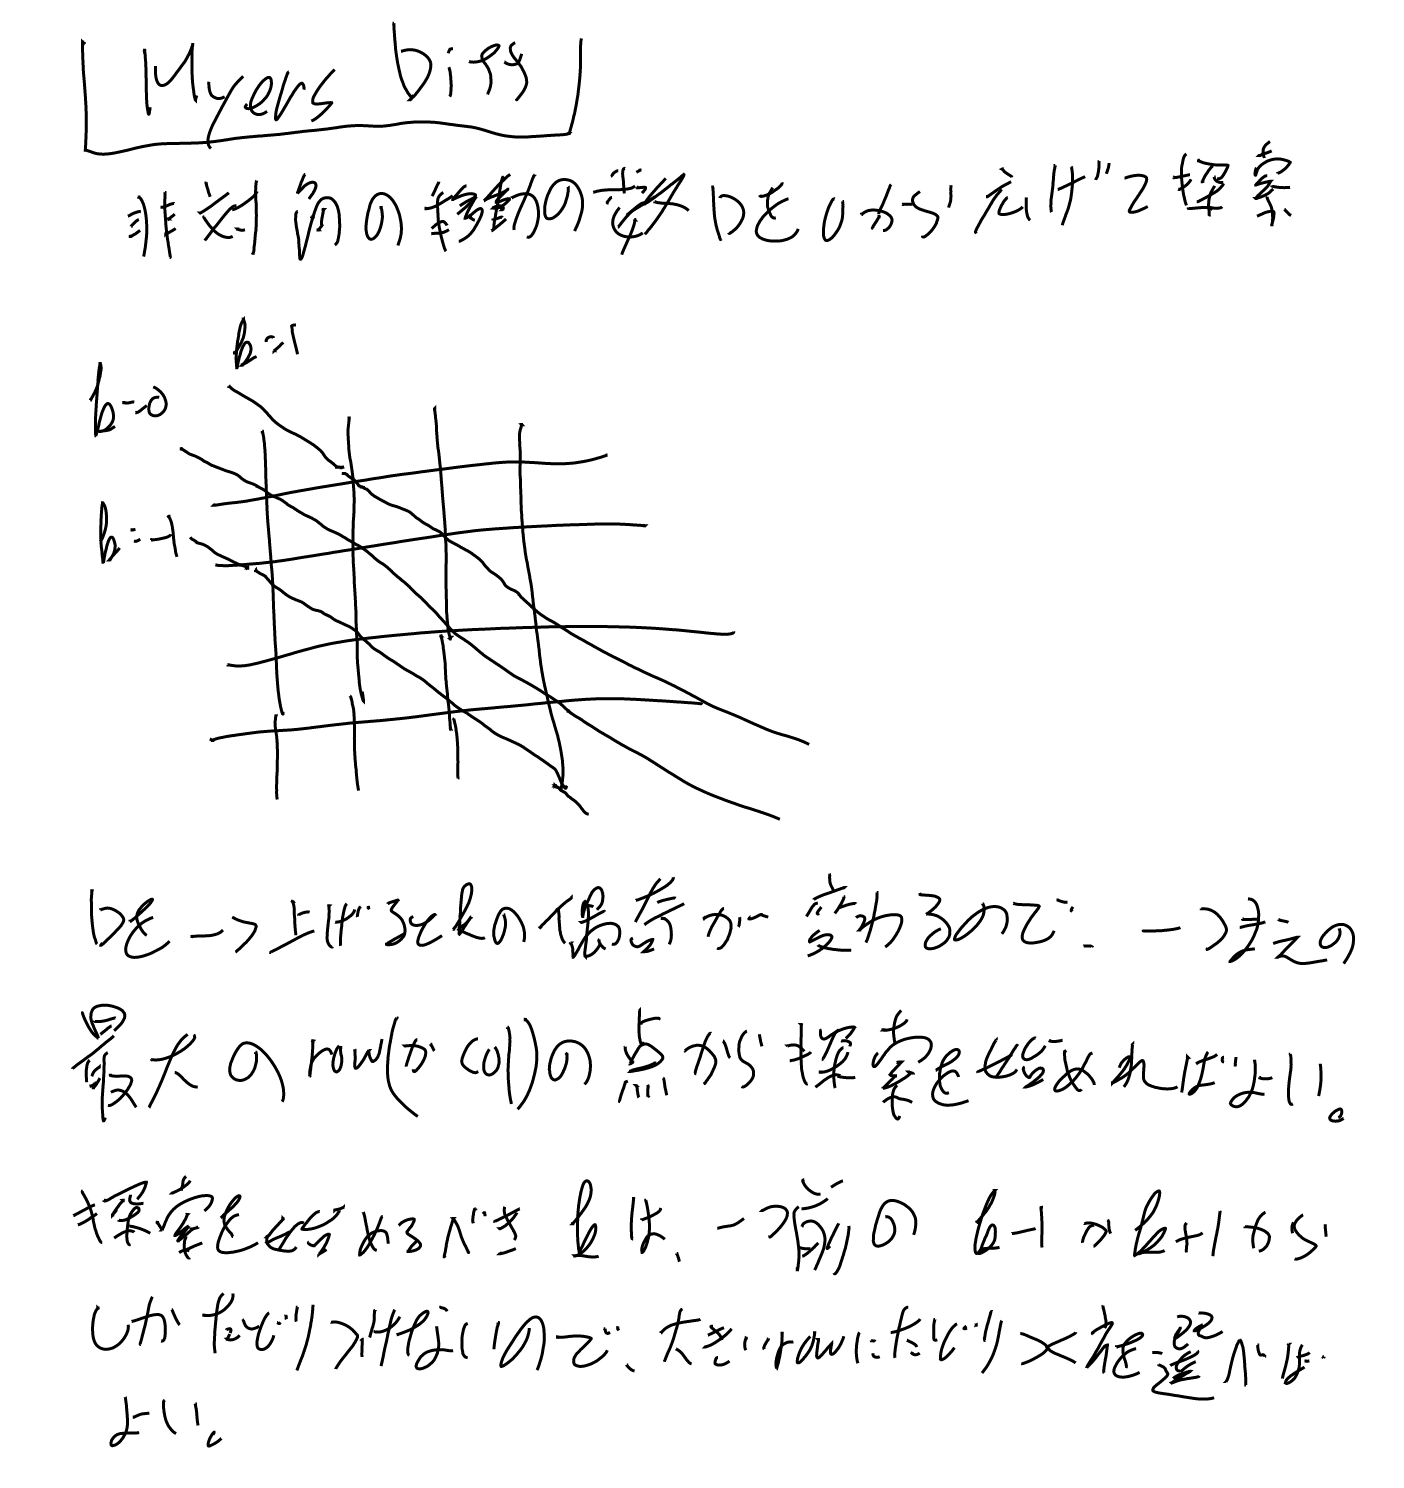 Myers Diff
非対角の移動の数Dを0から広げて探索
k=1
k=0
k=-1
Dを一つ上げるとkの偶奇が変わるので、一つまえの
最大のrow(かcol)の点から探索を始めればよい。
探索を始めるべきkは、一つ前のk-1かk+1から
しかたどりつけないので、大きいrowにたどりつく方を選べば
よい。